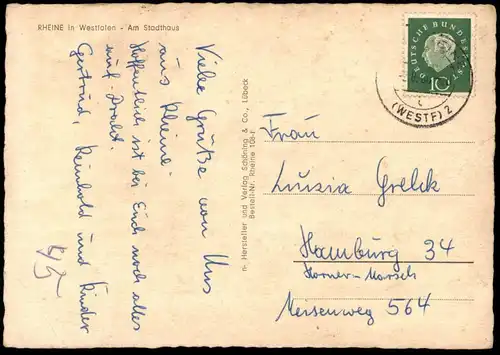 RHEINE in Westfalen - Am Stadthaus
Viele Grüße von Uns
aus Rheine.
Hoffentlich ist bei Euch noch alles
auf Draht.
Gertrud Reinhold und Kinder
4/5
n- Hersteller und Verlag Schöning & Co., Lübeck
Bestell-Nr. Rheine 108-F
DEUTSCHE BUNDESPOST
10
(WESTF) 2
Frau
Luzia Grelck
Hamburg 34
Horner-Marsch
Meisenweg 564